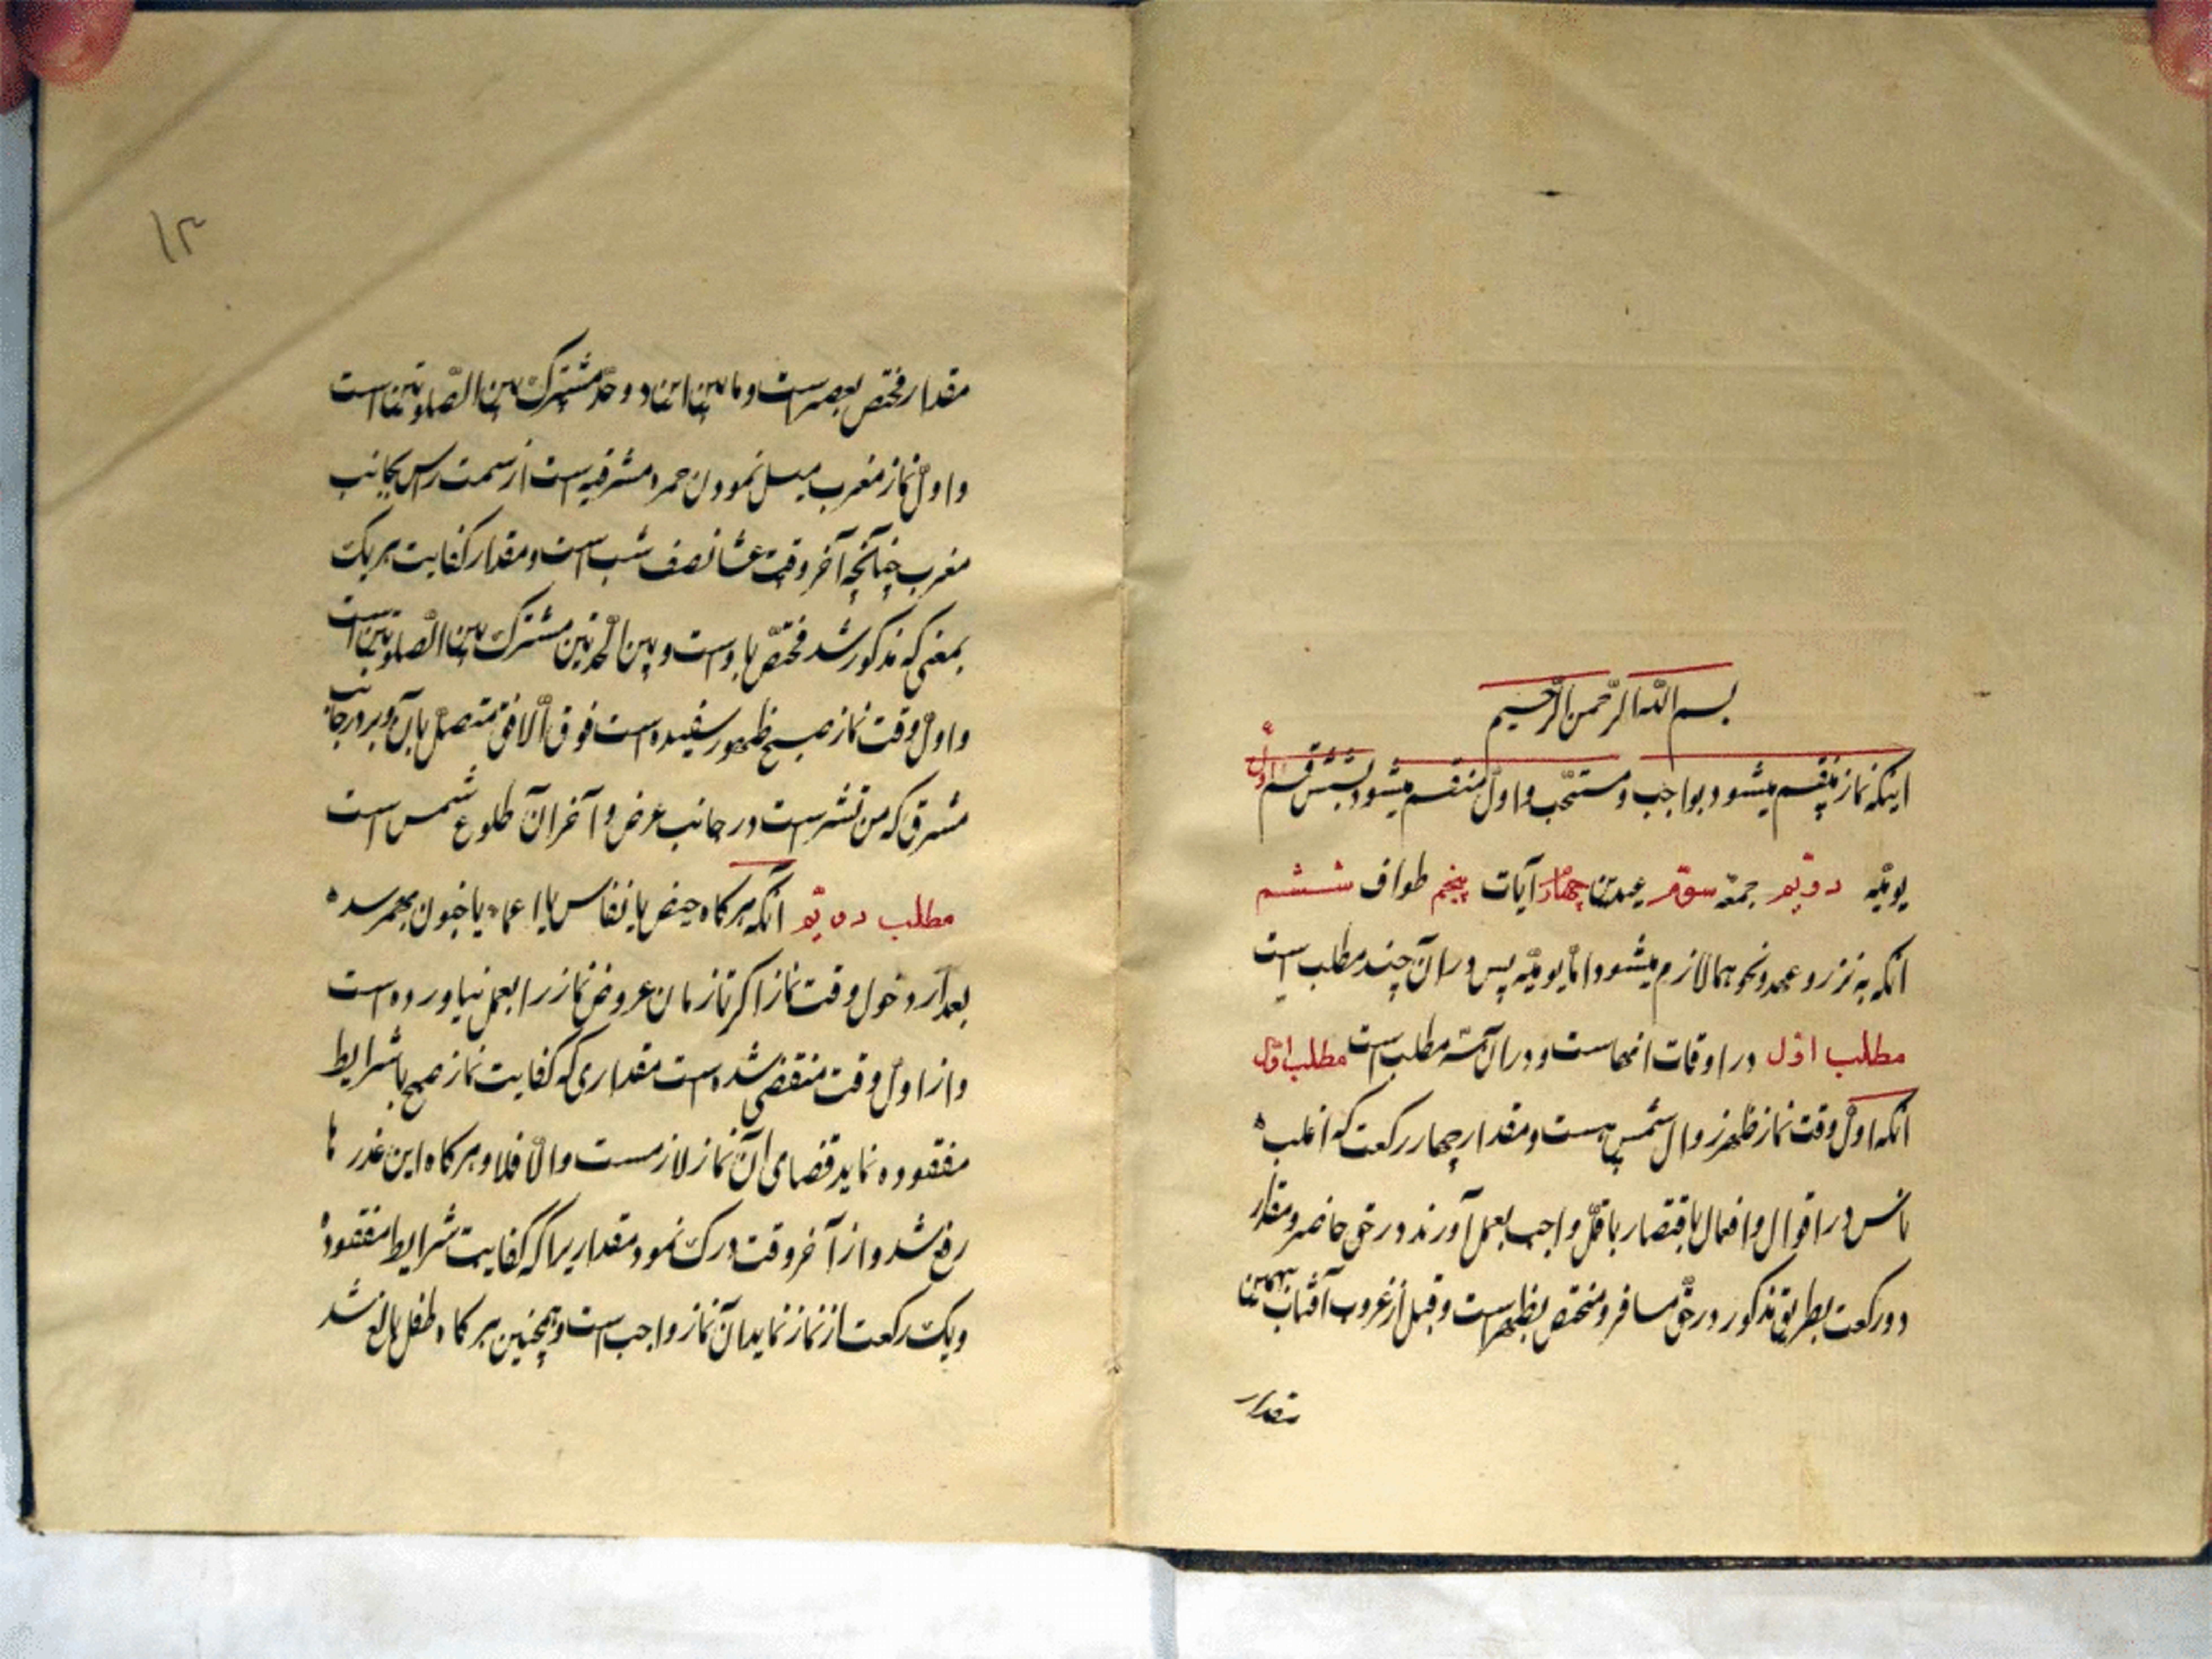 بسم اللّه الرّحمن الرّحیم
اینکه نماز منقسم میشود بواجب و مستحّب و اوّل منقسم میشود بشش قسم اوّل
یومیّه دویّم جمعه سوّم عیدین چهارم آیات پنجم طواف ششم
انکه به نزر و عهد و نحو هما لازم میشود امّا یومیّه پس در ان چند مطلب است
مطلب اوّل در اوقات انهاست و در ان سّه مطلب است مطلب اوّل
انکه اوّل وقت نماز ظهر زوال شمس هست و مقدار چهار رکعت که اغلبه
ناس در اقوال و افعال باقتصار باقلّ واجب بعمل آورند در حق حاضر و مقدار
دو رکعت بطریق مذکور در حقّ مسافر و مختص بظهر است و قبل از غروب آفتاب بهمین
مقدار
۱۳
مقدار مختص بعصر است و ما بین این دو حدّ مشترک بین الصّلوتین است
و اوّل نماز مغرب میل نمودن حمره مشرقیه است از سمت راس بجانب
مغرب چنانچه آخر وقت عشا نصف شب است و مقدار کفایت هر یک
بمعنی که مذکور شد مختصّ باوست و بین الحدّین مشترک بین الصّلوتین است
و اوّل وقت نماز صبح ظهور سفیده است فوق الافق متصل بان و برد در جانب
مشرق که من تشر است در جانب عرض و آخر آن طلوع شمس است
مطلب دویّم آنکه هر کاه حیض یا نفاس یا اغماء یا جنون بهمرسده
بعد از دخول وقت نماز اکر تا زمان عروض نماز را بعمل نیاورده است
و از اوّل وقت منقضی شده است مقداری که کفایت نماز صبح با شرایط
مفقوده نماید قضای آن نماز لازمست و الّا فلا و هر کاه این عذر ها
رفع شد و از آخر وقت درک نمود مقدار یرا که کفایت شرایط مفقوده
و یک رکعت از نماز نماید ان نماز واجب است و همچنین هر کاه طفل بالغ شد